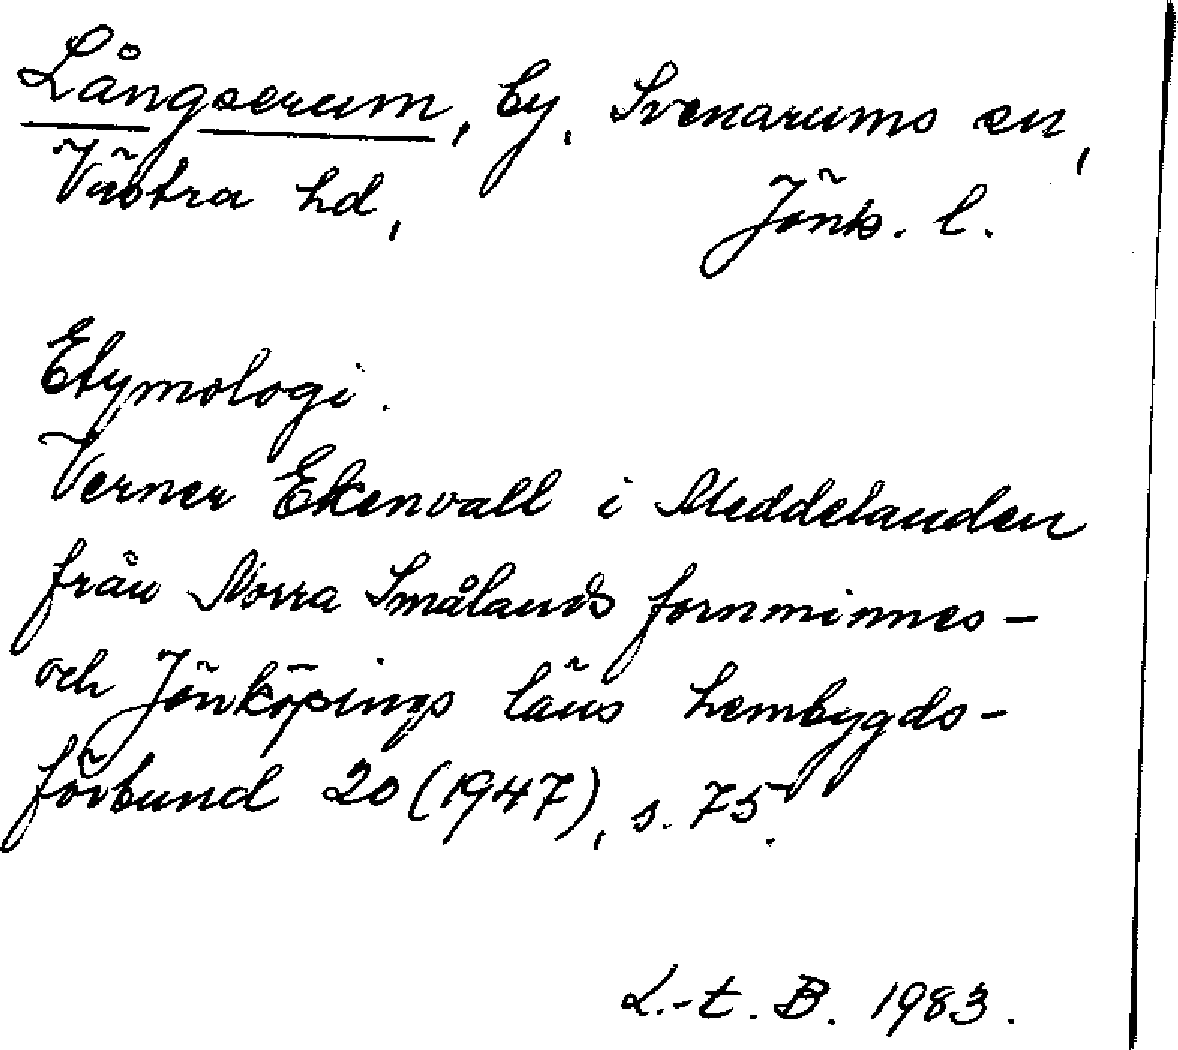 Långserum, by, Svenarums sn,
Västra hd, Jönk. l.
Etymologi.
Verner Ekenvall i Meddelanden
från Norra Smålands fornminnes-
och Jönköpings läns hembygds-
förbund 20 (1947), s. 75.
L.-t. B. 1983.